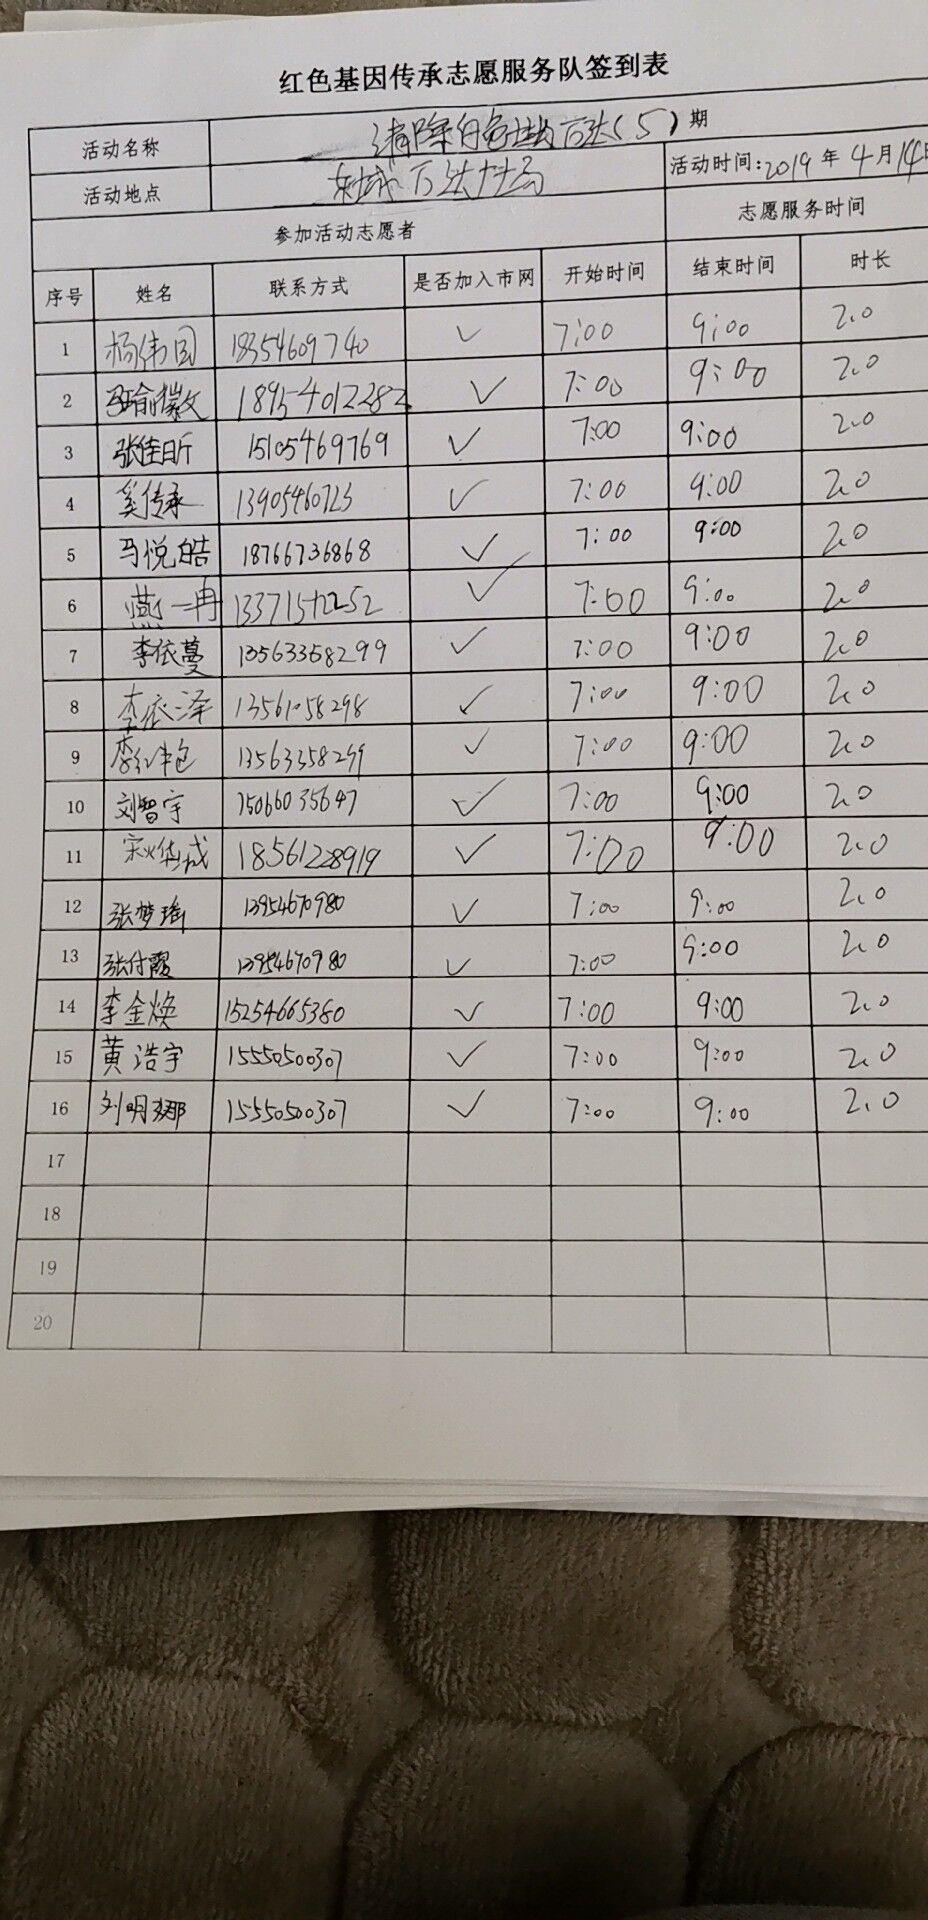 红色基因传承志愿服务队签到表
活动名称 清除白色垃圾 万达(5)期
活动地点 东城万达广场 活动时间:2019年4月14日
参加活动志愿者 志愿服务时间
序号 姓名 联系方式 是否加入市网 开始时间 结束时间 时长
1 杨伟国 18354609740 ✓ 7:00 9:00 2.0
2 马瑜徽 18954012282 ✓ 7:00 9:00 2.0
3 张佳昕 15105469769 ✓ 7:00 9:00 2.0
4 奚传承 13905460723 ✓ 7:00 9:00 2.0
5 马悦皓 18766736868 ✓ 7:00 9:00 2.0
6 燕一冉 ✓ 7:00 9:00 2.0
7 李依蔓 13563358299 ✓ 7:00 9:00 2.0
8 李依泽 13561058298 ✓ 7:00 9:00 2.0
9 13563358299 ✓ 7:00 9:00 2.0
10 刘智宇 15066035647 ✓ 7:00 9:00 2.0
11 18561228919 ✓ 7:00 9:00 2.0
12 张梦瑶 13954670980 ✓ 7:00 9:00 2.0
13 张付霞 13954670980 ✓ 7:00 9:00 2.0
14 李金焕 15254665380 ✓ 7:00 9:00 2.0
15 黄浩宇 15550500307 ✓ 7:00 9:00 2.0
16 刘明娜 15550500307 ✓ 7:00 9:00 2.0
17
18
19
20